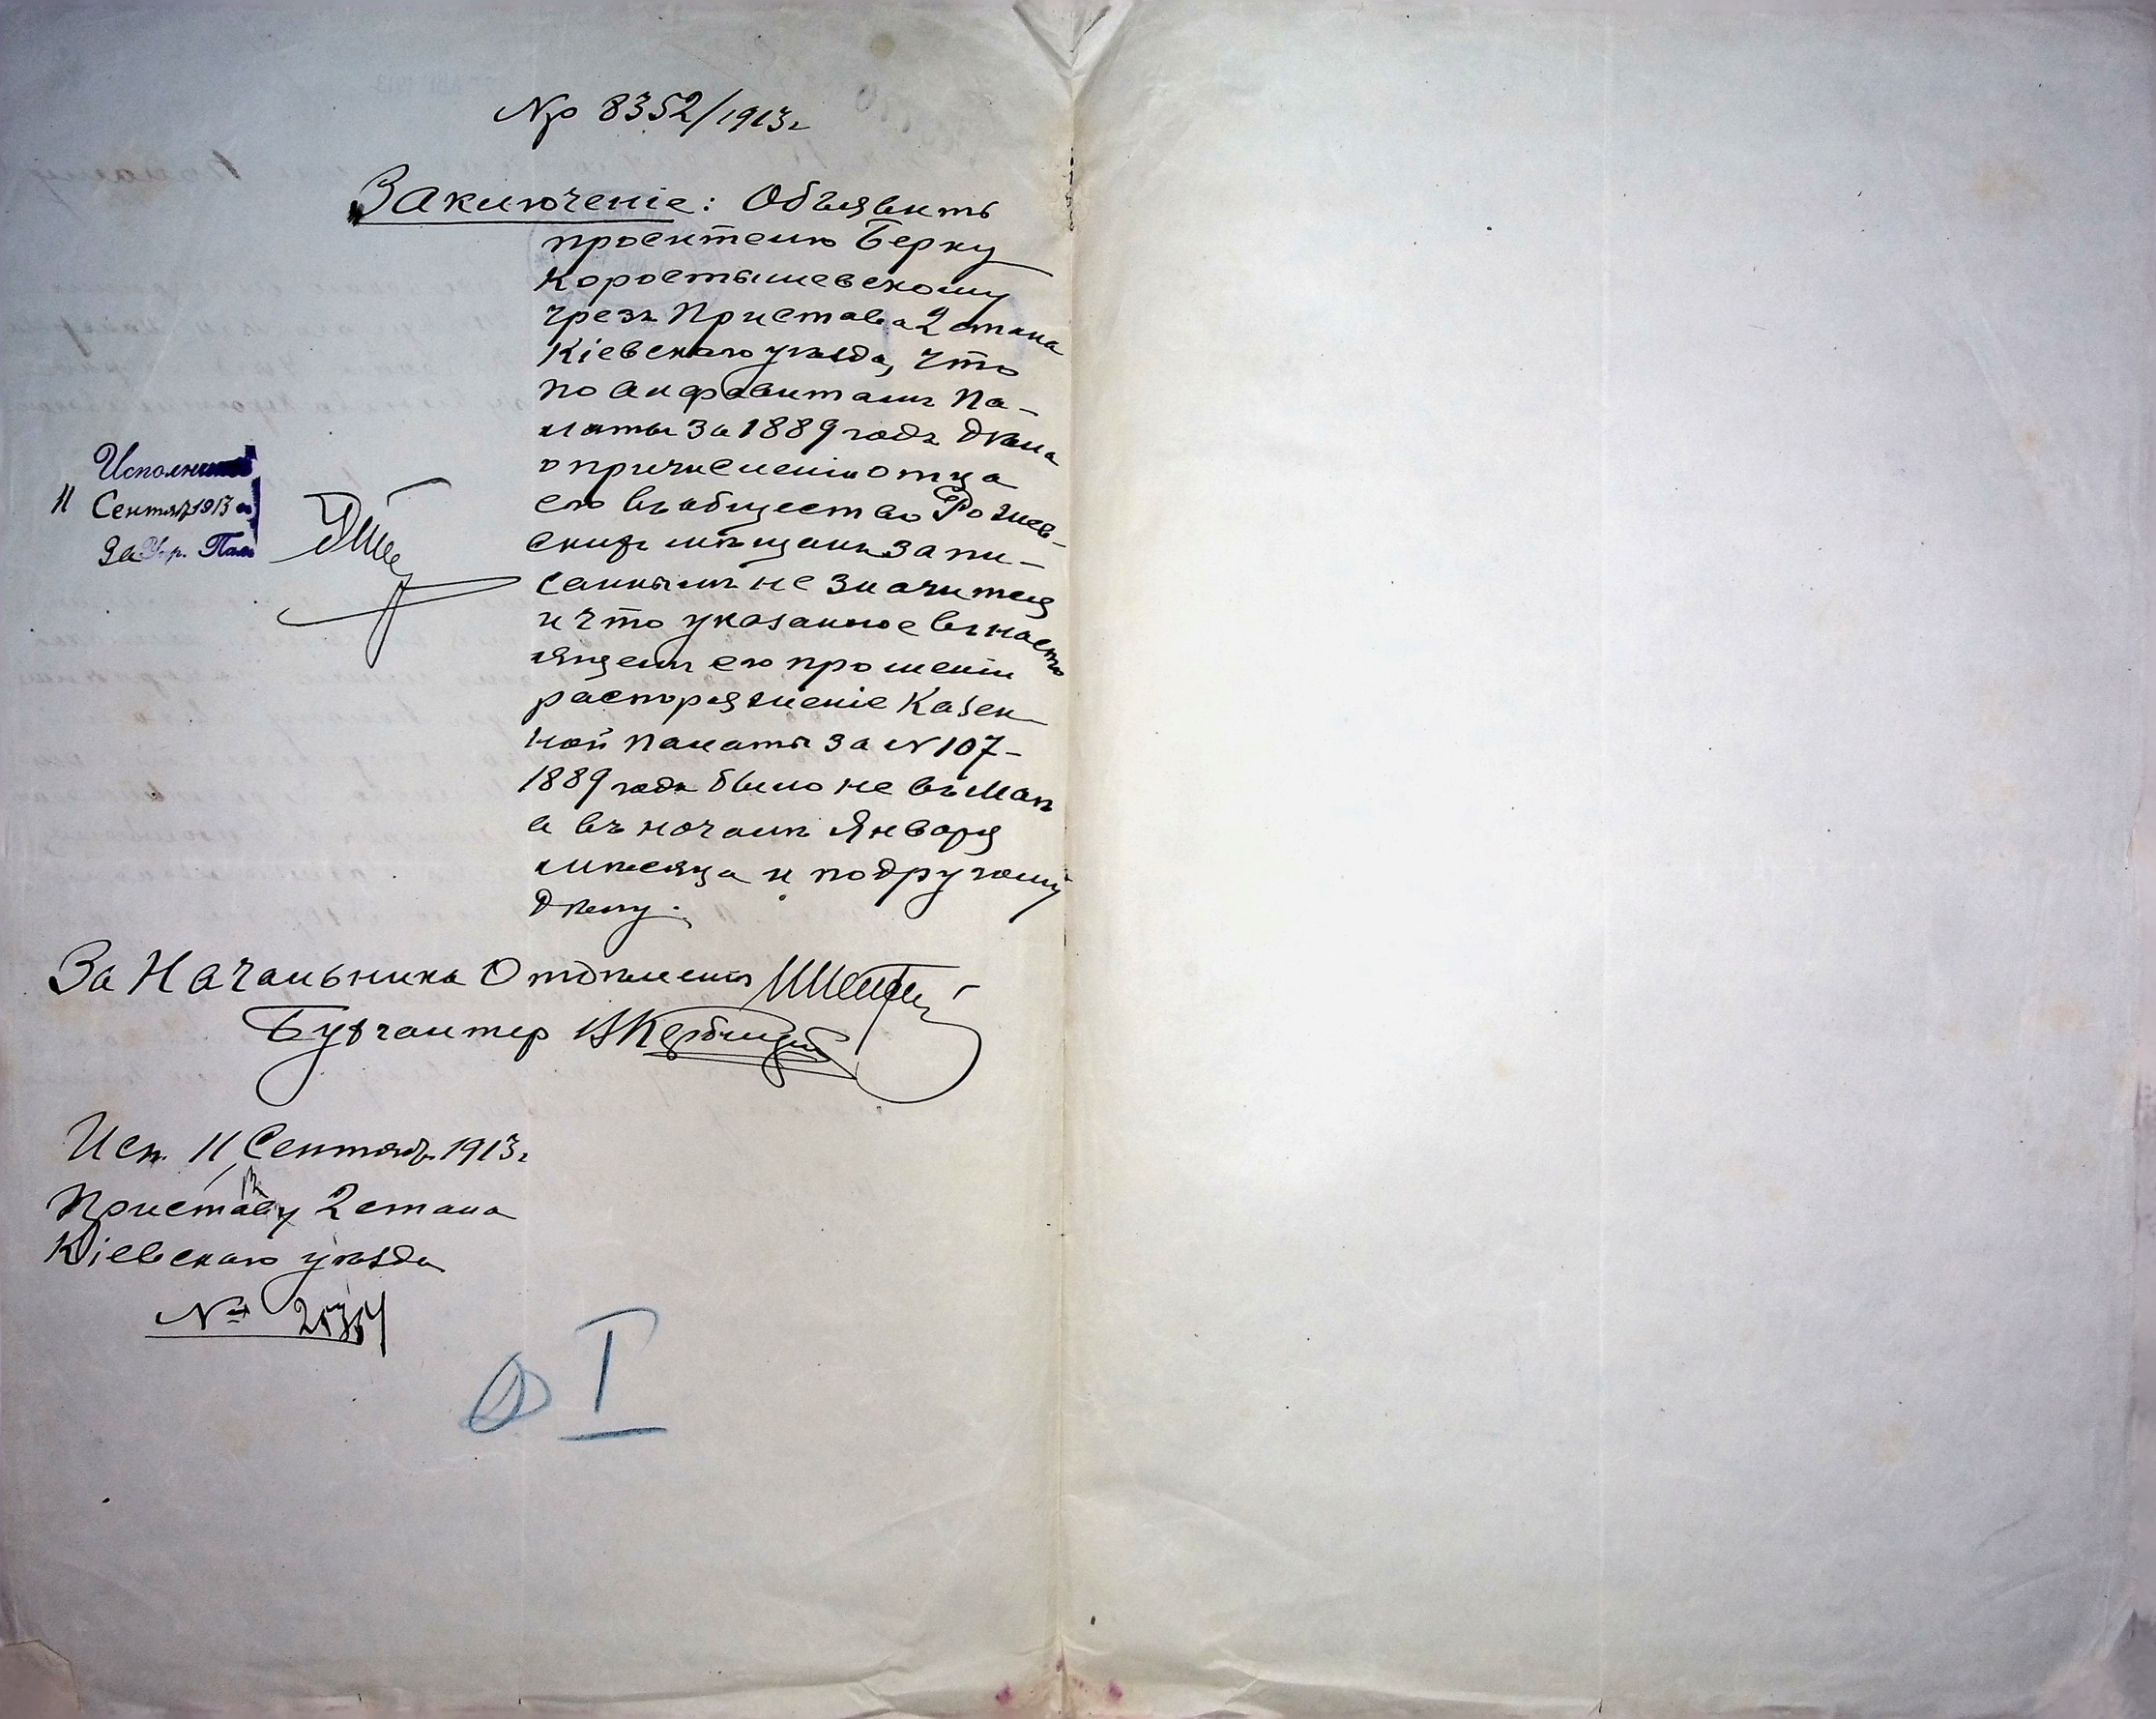 Nр 8352/1913г
Заключеніе: Объявить
просителю Берку
Коростышевскому
чрезъ Пристава 2 стана
Кіевскаго уѣзда, что
по алфавитамъ Па-
латы за 1889 годъ дѣла
о причисленіи отца
его въ общество Рожев-
скихъ мѣщанъ запи-
саннымъ не значится
и что указанное въ насто
ящемъ его прошеніи
распоряженіе Казен
ной Палаты за N 107-
1889 года было не въ Маѣ
а въ началѣ Января
мѣсяца и по другому
дѣлу.
Исполнить
11 Сентяб 1913 г
За Упр. Пал
За Начальника Отдѣленія
Бухгалтер
Исп. 11 Сентяб. 1913г
Приставу 2 стана
Кіевскаго уѣзда
№
I